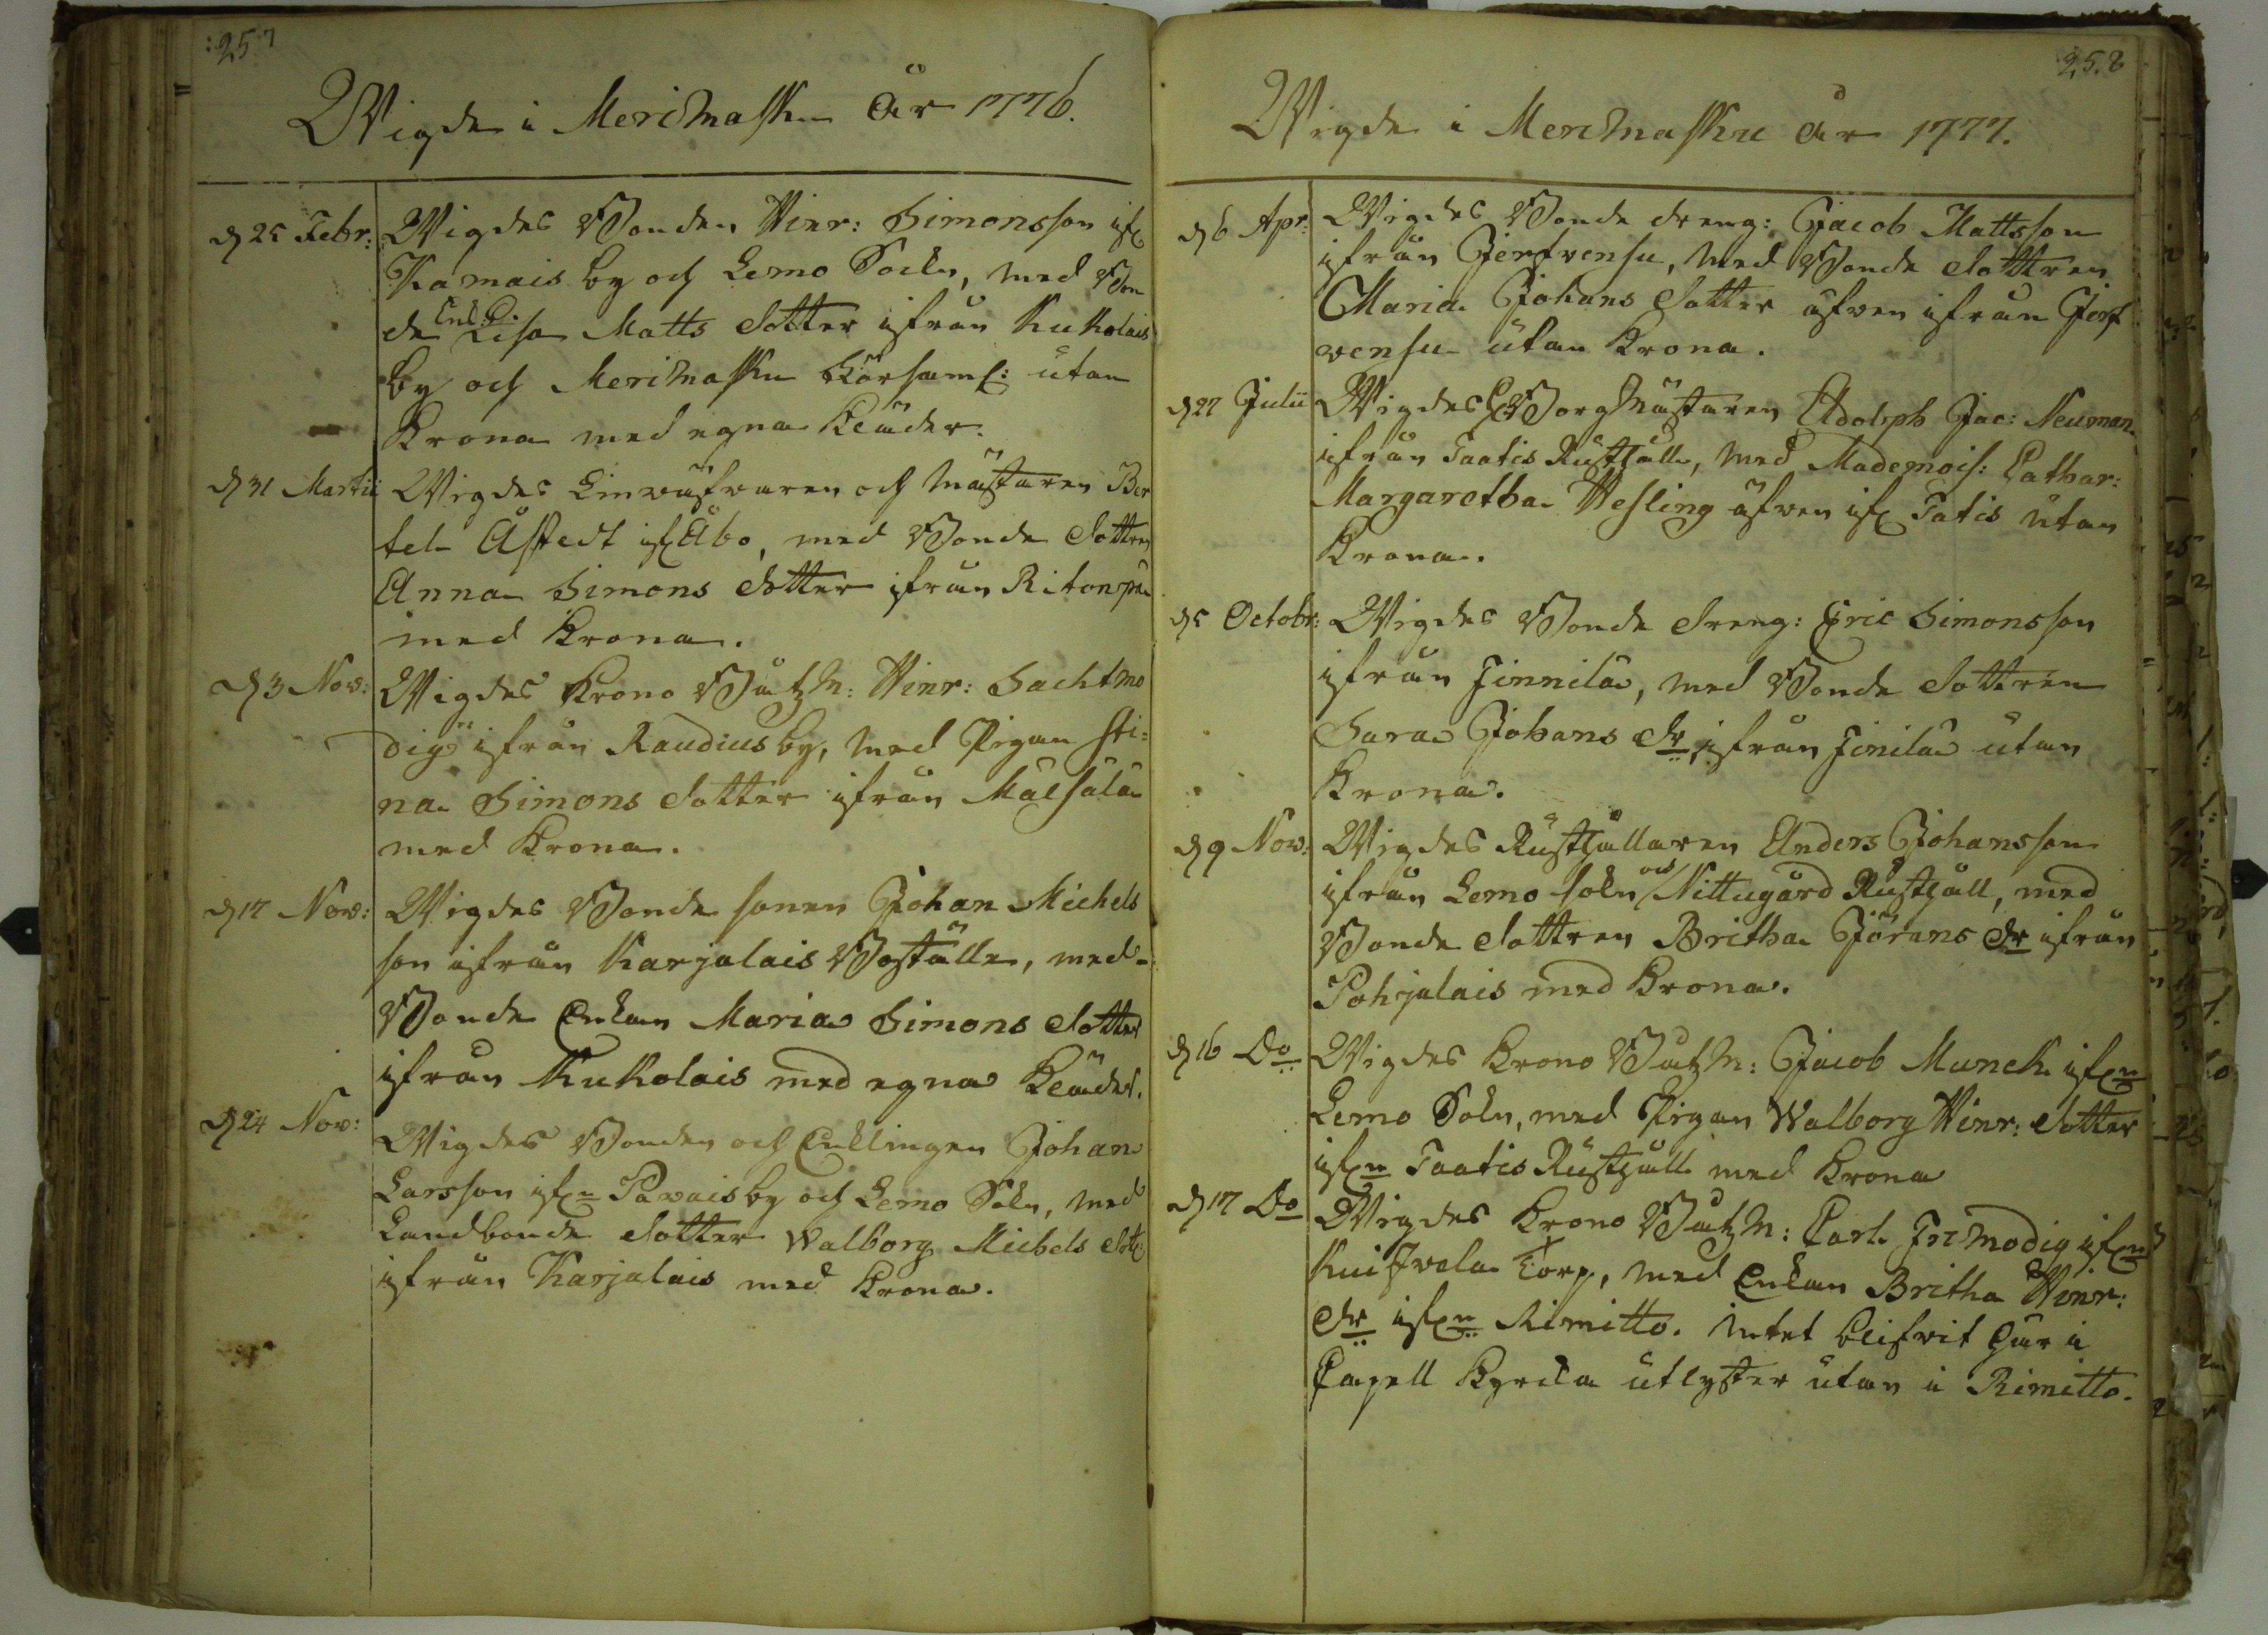 257
Wigde i Merimasku år 1776.
d 25 Febr: Wigdes Bonden Hinr: Simonsson ifr
Kamais by och Lemo Sockn, med Bon
de Enk. D. Lisa Matts dotter ifrån Kukolais
by och Merimasku Församl: utan
Krona med egna kläder.
d 31 Martii Wigdes Linwäfvaren och Mästaren Ber
tel Åstedt ifr Åbo, med Bonde dottren
Anna Simons dotter ifrån Ritonpä
med Krona.
d 3 Nov: Wigdes Krono Båtzm: Hinr: Sachtmo
dig ifrån Raudius by, med Pigan Sti=
na Simons dotter ifrån Målsåla
med Krona.
d 17 Nov: Wigdes Bonde sonen Johan Michels
son ifrån Karjalais Boställe, med
Bonde Enkan Maria Simons dotter
ifrån Kukolais med egna kläder.
d 24 Nov: Wigdes Bonden och Enklingen Johan
Larsson ifrn Pavais by och Lemo Sokn, med
Landbonde dotter Walborg Michels dott:
ifrån Karjalais med Krona.
258
Wigde i Merimasku år 1777.
d 6 Apr: Wigdes Bonde dreng: Jacob Mattsson
ifrån Jerfvensu, med Bonde dottren
Maria Johans dotter äfven ifrån Jerf
vensu utan Krona.
d 27 Julii Wigdes Borgmästaren Adolph Jac: Neuman
ifrån Taatis Rusthåll, med Mademois: Cathar:
Margaretha Hesling äfven ifr Tatis utan
Krona.
d 5 Octobr: Wigdes Bonde dreng: Eric Simonsson
ifrån Finnila, med Bonde dottren
Sara Johans dr ifrån Finila utan
Krona.
d 9 Nov: Wigdes Rusthållaren Anders Johansson
ifrån Lemo sokn och Nittugård Rusthåll, med
Bonde dottren Britha Jörans dr ifrån
Pohjalais med Krona.
d 16 Do Wigdes Krono Båtzm: Jacob Munck ifrn
Lemo Sokn, med Pigan Walborg Hinr: dotter
ifrn Taatis Rusthåll med Krona
d 17 Do Wigdes Krono Båtzm: Carl Frimodig ifrn
Kuifvala Torp, med Enkan Britha Hinr:
dr ifrn Rimitto. intet blifvit här i
Capell Kyrcka utlyster utan i Rimitto.